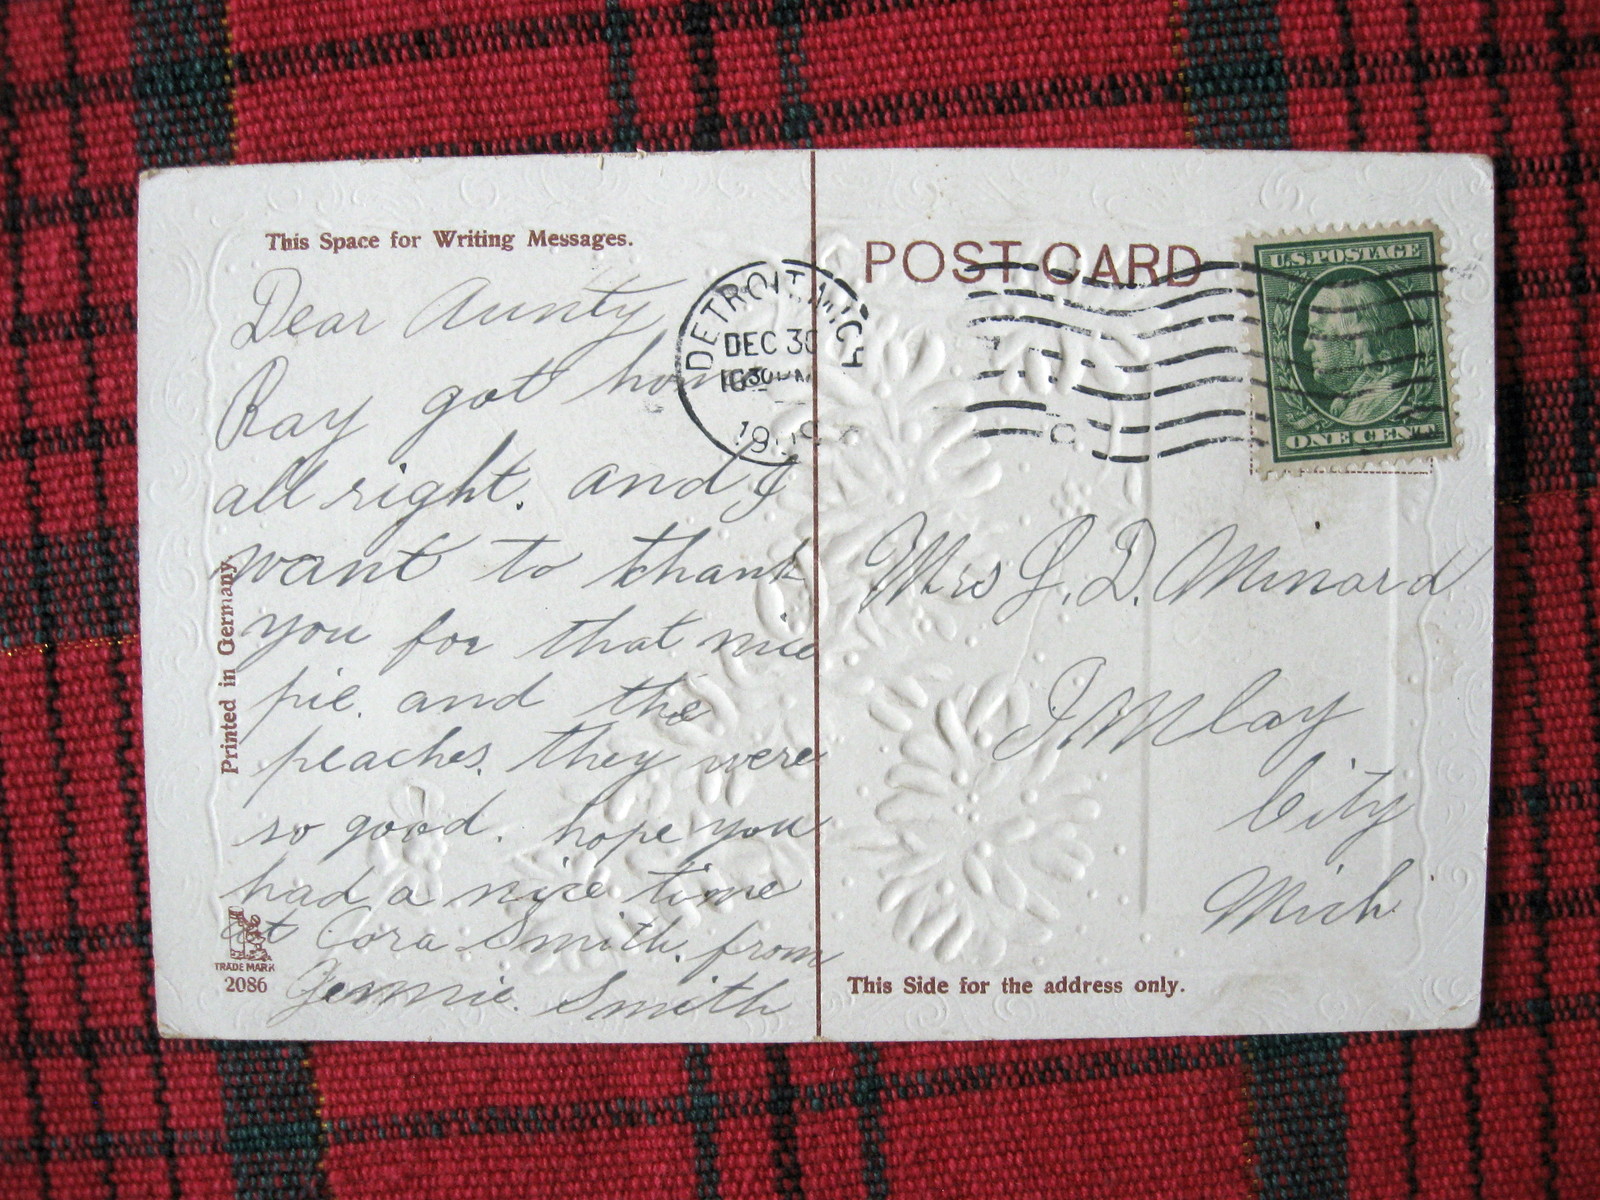 This Space for Writing Messages.
Dear Aunty
Ray got home
all right. and I
want to thank
you for that nice
pie. and the
peaches. they were
so good. hope you
had a nice time
at Cora Smith. from
Jennie. Smith
Printed in Germany.
TRADE MARK
2086
DETROIT, MICH
DEC 30
POST CARD
U.S. POSTAGE
ONE CENT
Mrs J. D. Minard
IMlay
City
Mich
This Side for the address only.